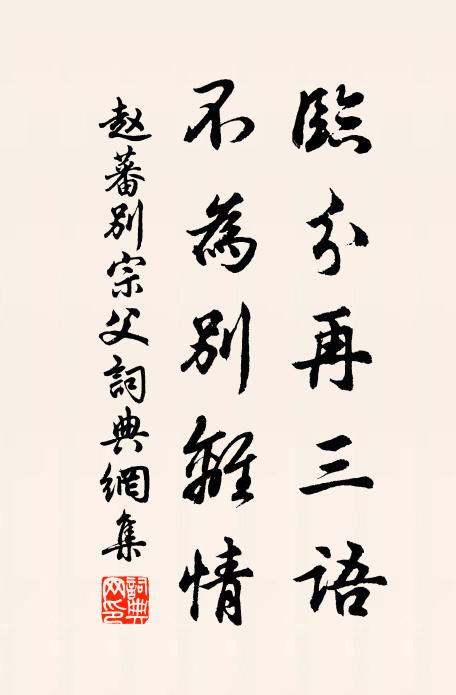 臨分再三語
不為別離情
赵蕃別宗父詞典網集
詞典網印